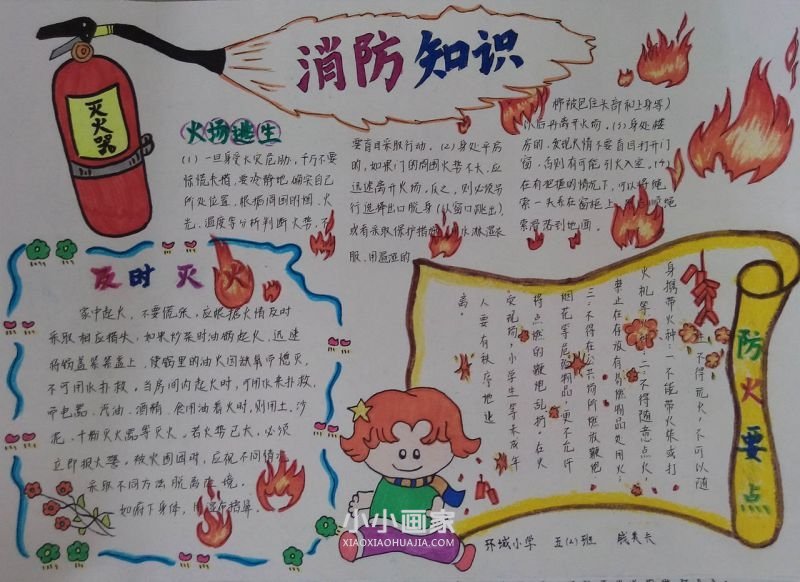 消防知识
灭火器
火场逃生
(1)一旦身受火灾危胁,千万不要
惊慌失措,要冷静地确实自己
所处位置,根据周围的烟、火
光、温度等分析判断火势,不
要盲目采取行动。(2)身处平房
的,如果门的周围火势不大,应
迅速离开火场。反之,则必须另
行选择出口脱身(从窗口跳出),
或者采取保护措施
水淋湿衣
服、用温湿的
棉被包住头部和上身等)
以后再离开火场。(3)身处楼
房的,发现火情不要盲目打开门
窗,否则有可能引火入室。(4)
在有把握的情况下,可以将绳
索一头系在窗框上,
顺绳
索滑落到地面。
及时灭火
家中起火,不要慌张,应根据火情及时
采取相应措头,如果炒菜时油锅起火,迅速
将锅盖紧紧盖上,使锅里的油火因缺氧而熄灭,
不可用水扑救,当房间内起火时,可用水来扑救,
带电器、汽油、酒精、食用油着火时,则用土、沙
泥、干粉灭火器等灭火,若火势已大,必须
立即报火警,被火围困时,应视不同情
采取不同方法脱离险境。
如府下身体,用湿布捂鼻。
防火要点
不得玩火,不可以随
身携带火种:一不能带火柴或打
火机等火种;二不得随意点火,
禁止在存放有易燃物品处用火;
三:不得在公共场所燃放鞭炮
烟花等危险物品,更不允许
将点燃的鞭炮乱扔。在火
灾现场,小学生等未成年
人要有秩序地逃
离。
环城小学 五(2)班
小小画家
XIAOXIAOHUAJIA.COM